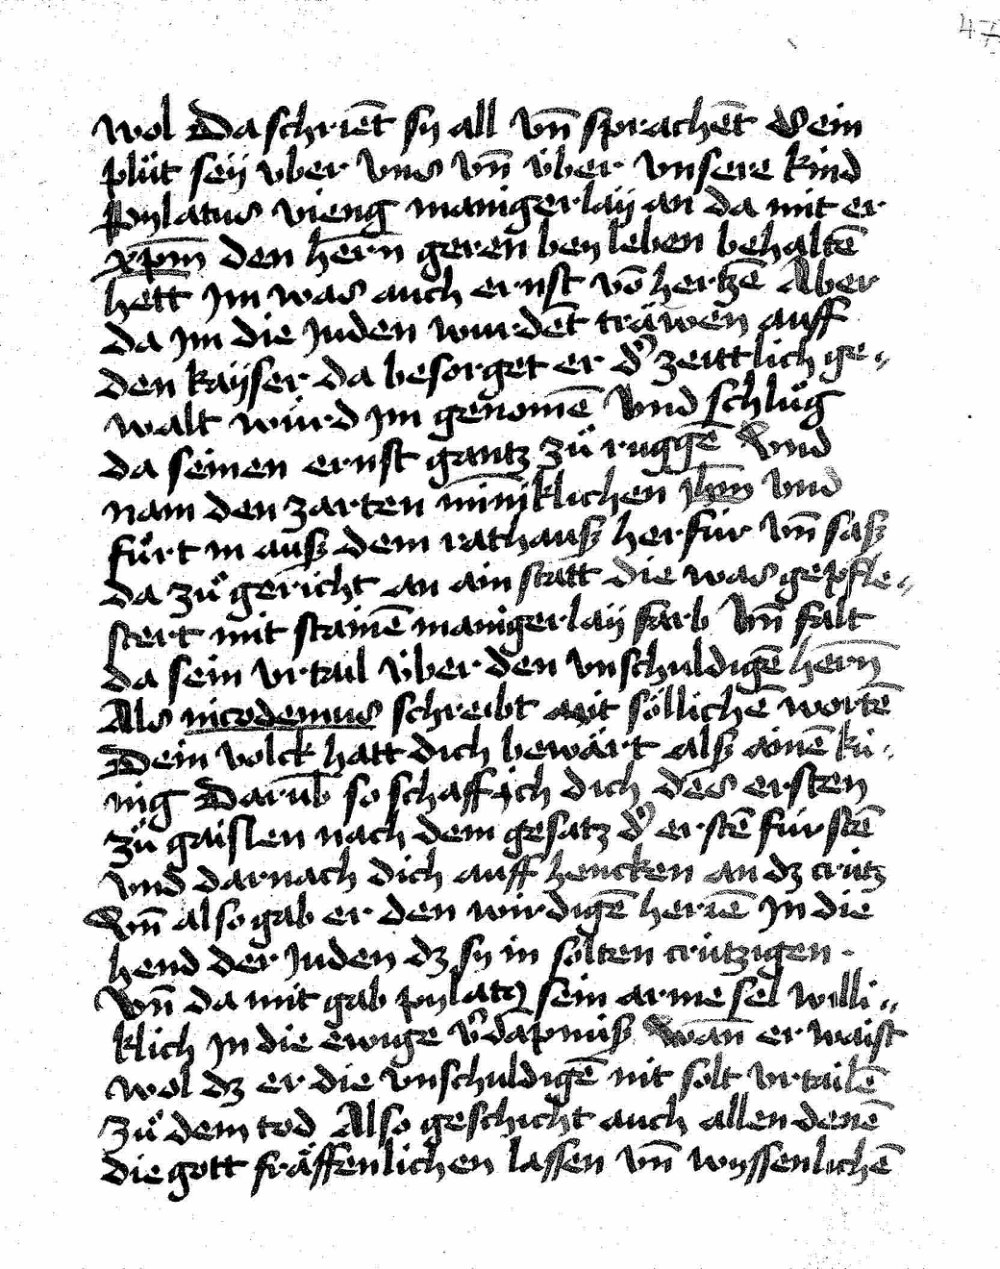 47
wol Da schriēt sy all vn̄ sprachēt Sein
plůt seÿ vber vns vn̄ v̈ber vnsere kind
Pylatus vieng manigerlaÿ an da mit er
xp̄m den hern̄ geren beÿ leben behaltē
hett Im was auch ernst vō hertzē Aber
da Im die Juden wurdēt träwen auff
den kaÿser da besorget er d' zeittlich ge„
walt wurd im genomē Vnd schlůg
da seinen ernst gantz zů ruggē Vnd
nam den zarten miñiklichen Jhm̄ vnd
fůrt in auß dem rathauß herfür vn̄ saß
da zů gericht an ain statt die was gepfle„
stert mit stainē manigerlaÿ farb Vn̄ falt
da sein vrtail v̈ber den vnschuldigē hern̄
Als nicodemus schreibt mit söllichē wortē
Dein volck hatt dich bewärt alß ainē kü„
nig Darūb so schaff ich dich des ersten
zů gaislen nach dem gesatz d' erstē fürstē
vnd darnach dich auff hencken an dz crütz
Vn̄ also gab er den wirdigē heriē In die
hend der Juden dz sy in solten crützigen ·
Vn̄ da mit gab pylatꝰ sein arme sel willi„
klich In die ewige v'dāpnuß Wan̄ er waist
wol dz er die vnschuldigē nit solt vrtailē
zů dem tod Also geschicht auch allen denē
die gott fräffenlichen lassen vn̄ wyssenlichē